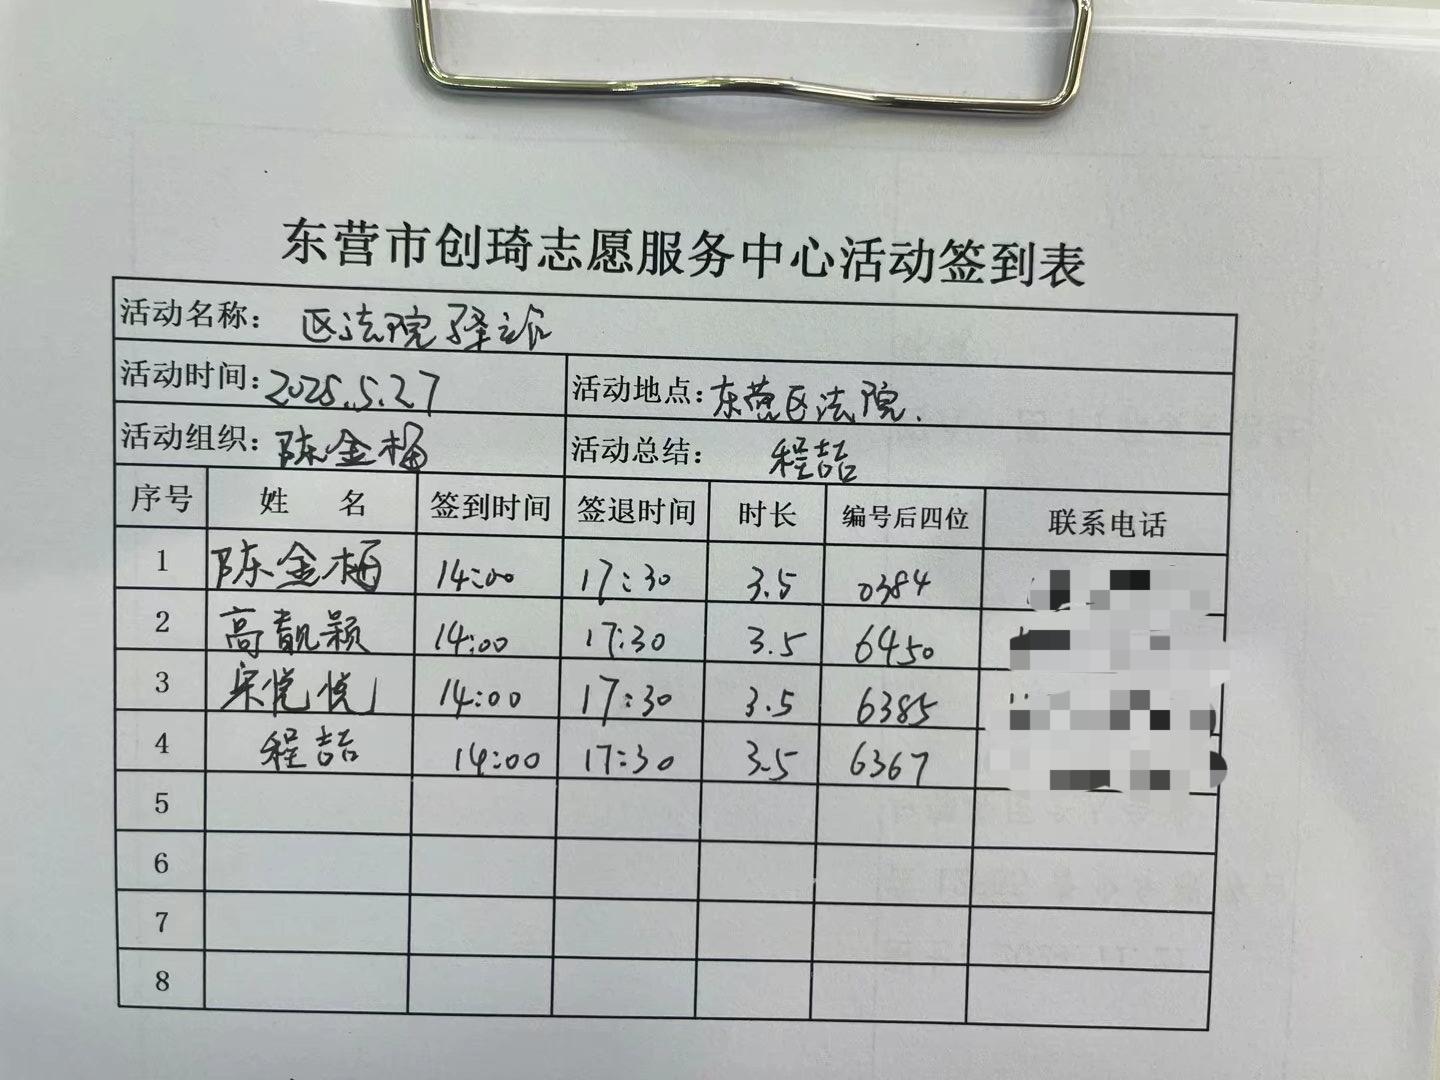 东营市创琦志愿服务中心活动签到表
活动名称: 区法院驿站
活动时间: 2025.5.27 活动地点: 东营区法院.
活动组织: 陈金梅 活动总结: 程喆
序号 姓 名 签到时间 签退时间 时长 编号后四位 联系电话
1 陈金梅 14:00 17:30 3.5 0384
2 高靓颖 14:00 17:30 3.5 6450
3 宋悦悦 14:00 17:30 3.5 6385
4 程喆 14:00 17:30 3.5 6367
5
6
7
8